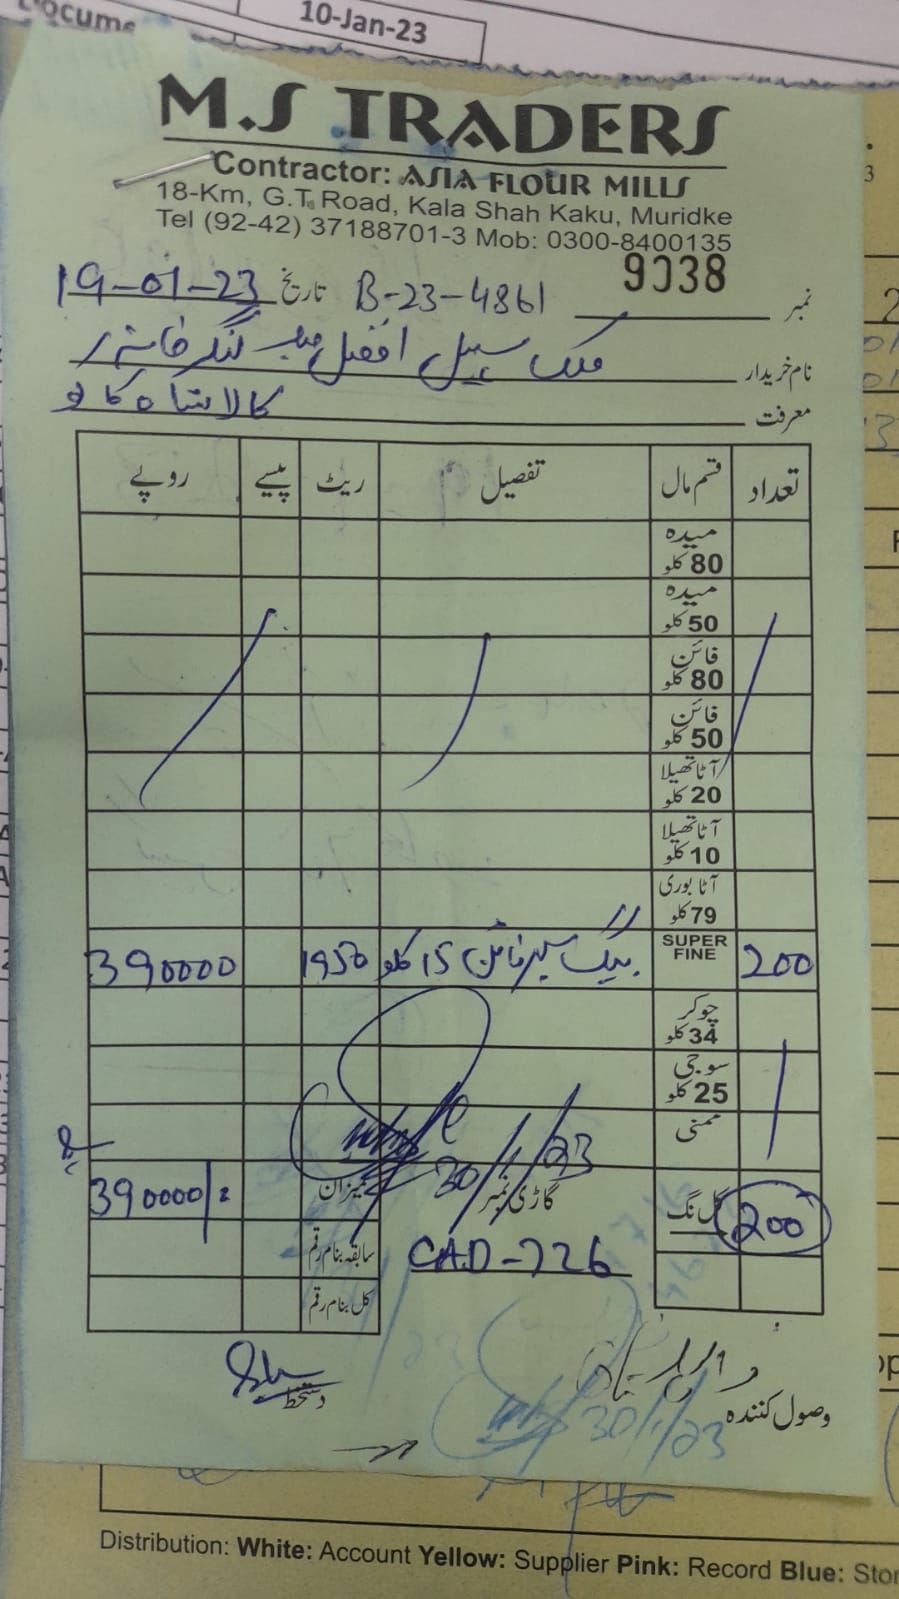 Docume
10-Jan-23
M.S TRADERS
Contractor: ASIA FLOUR MILLS
18-Km, G.T. Road, Kala Shah Kaku, Muridke
Tel (92-42) 37188701-3 Mob: 0300-8400135
نمبر 9038 B-23-4861 تاریخ 19-01-23
نام خریدار ملک سہیل افضل لنگر خانہ
معرفت کالا شاہ کاکو
تعداد قسم مال تفصیل ریٹ پیسے روپے
میدہ 80 کلو
میدہ 50 کلو
فائن 80 کلو
فائن 50 کلو
آٹا تھیلا 20 کلو
آٹا تھیلا 10 کلو
آٹا بوری 79 کلو
200 SUPER FINE بیگ سپر فائن 15 کلو 1950 390000
چوکر 34 کلو
سوجی 25 کلو
ممنی
30/1/23
200 کل نگ گاڑی نمبر میزان 390000/=
CAD-726 سابقہ بنام رقم
کل بنام رقم
وصول کنندہ دستخط
30/1/23
Distribution: White: Account Yellow: Supplier Pink: Record Blue: Stor